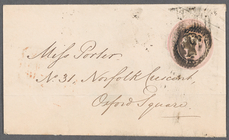 Miss Porter
No. 31, Norfolk Crescent,
Oxford Square